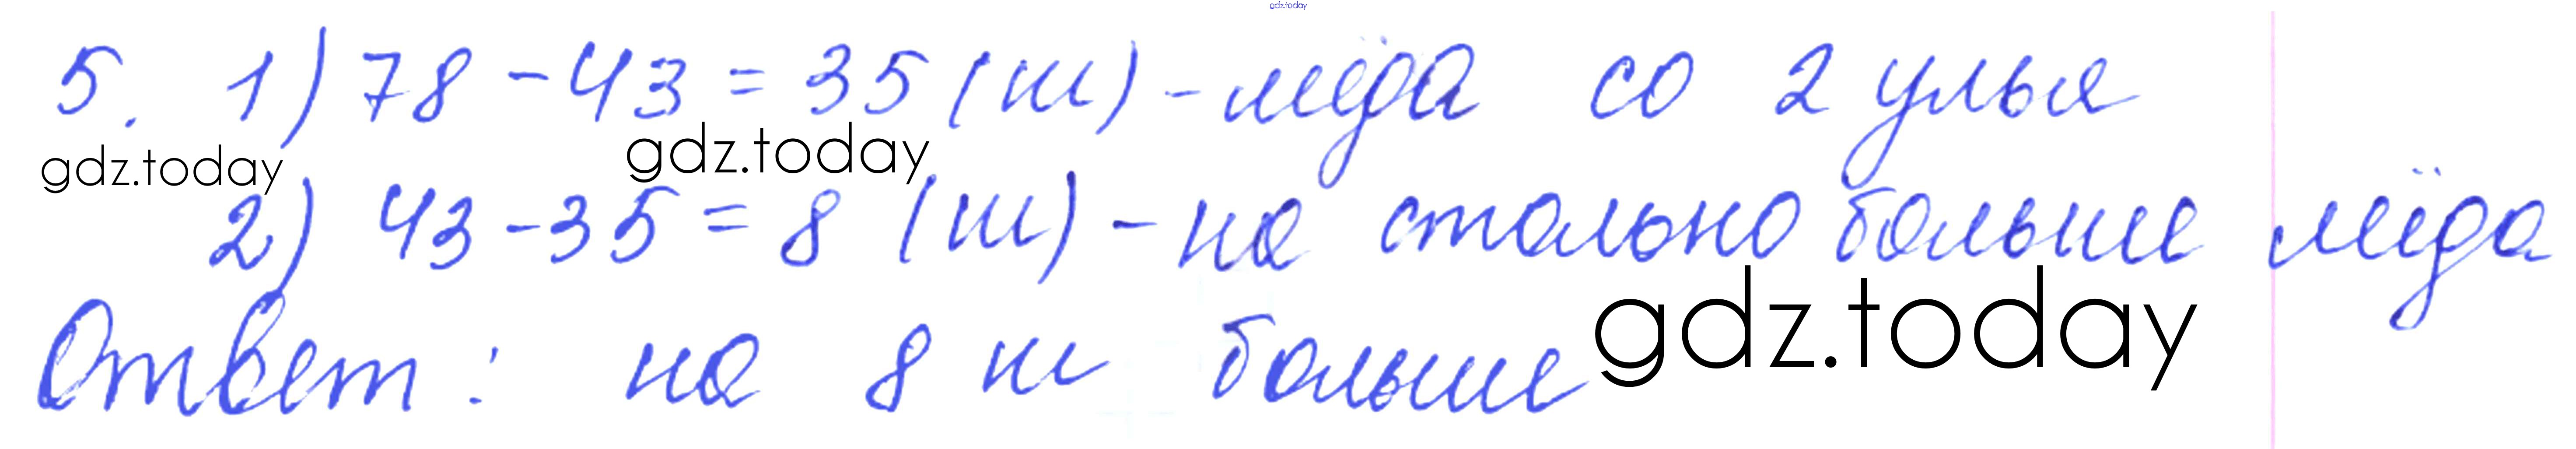 gdz.today
5. 1) 78 - 43 = 35 (кг) - мёда со 2 улья
gdz.today gdz.today
2) 43 - 35 = 8 (кг) - на столько больше мёда
Ответ: на 8 кг больше
gdz.today